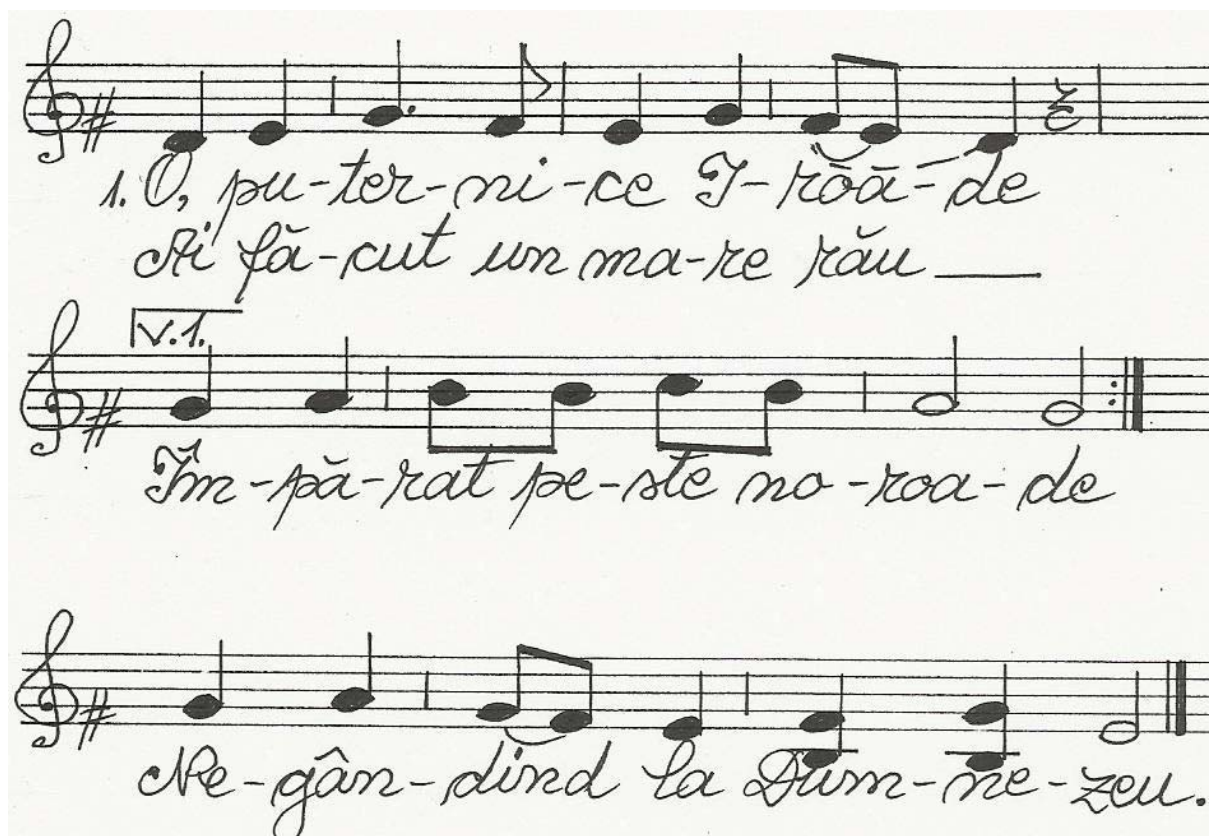 1. O, pu-ter-ni-ce I-roa-de
Ai fă-cut un ma-re rău
V.1.
Îm-pă-rat pe-ste no-roa-de
Ne-gân-dind la Dum-ne-zeu.